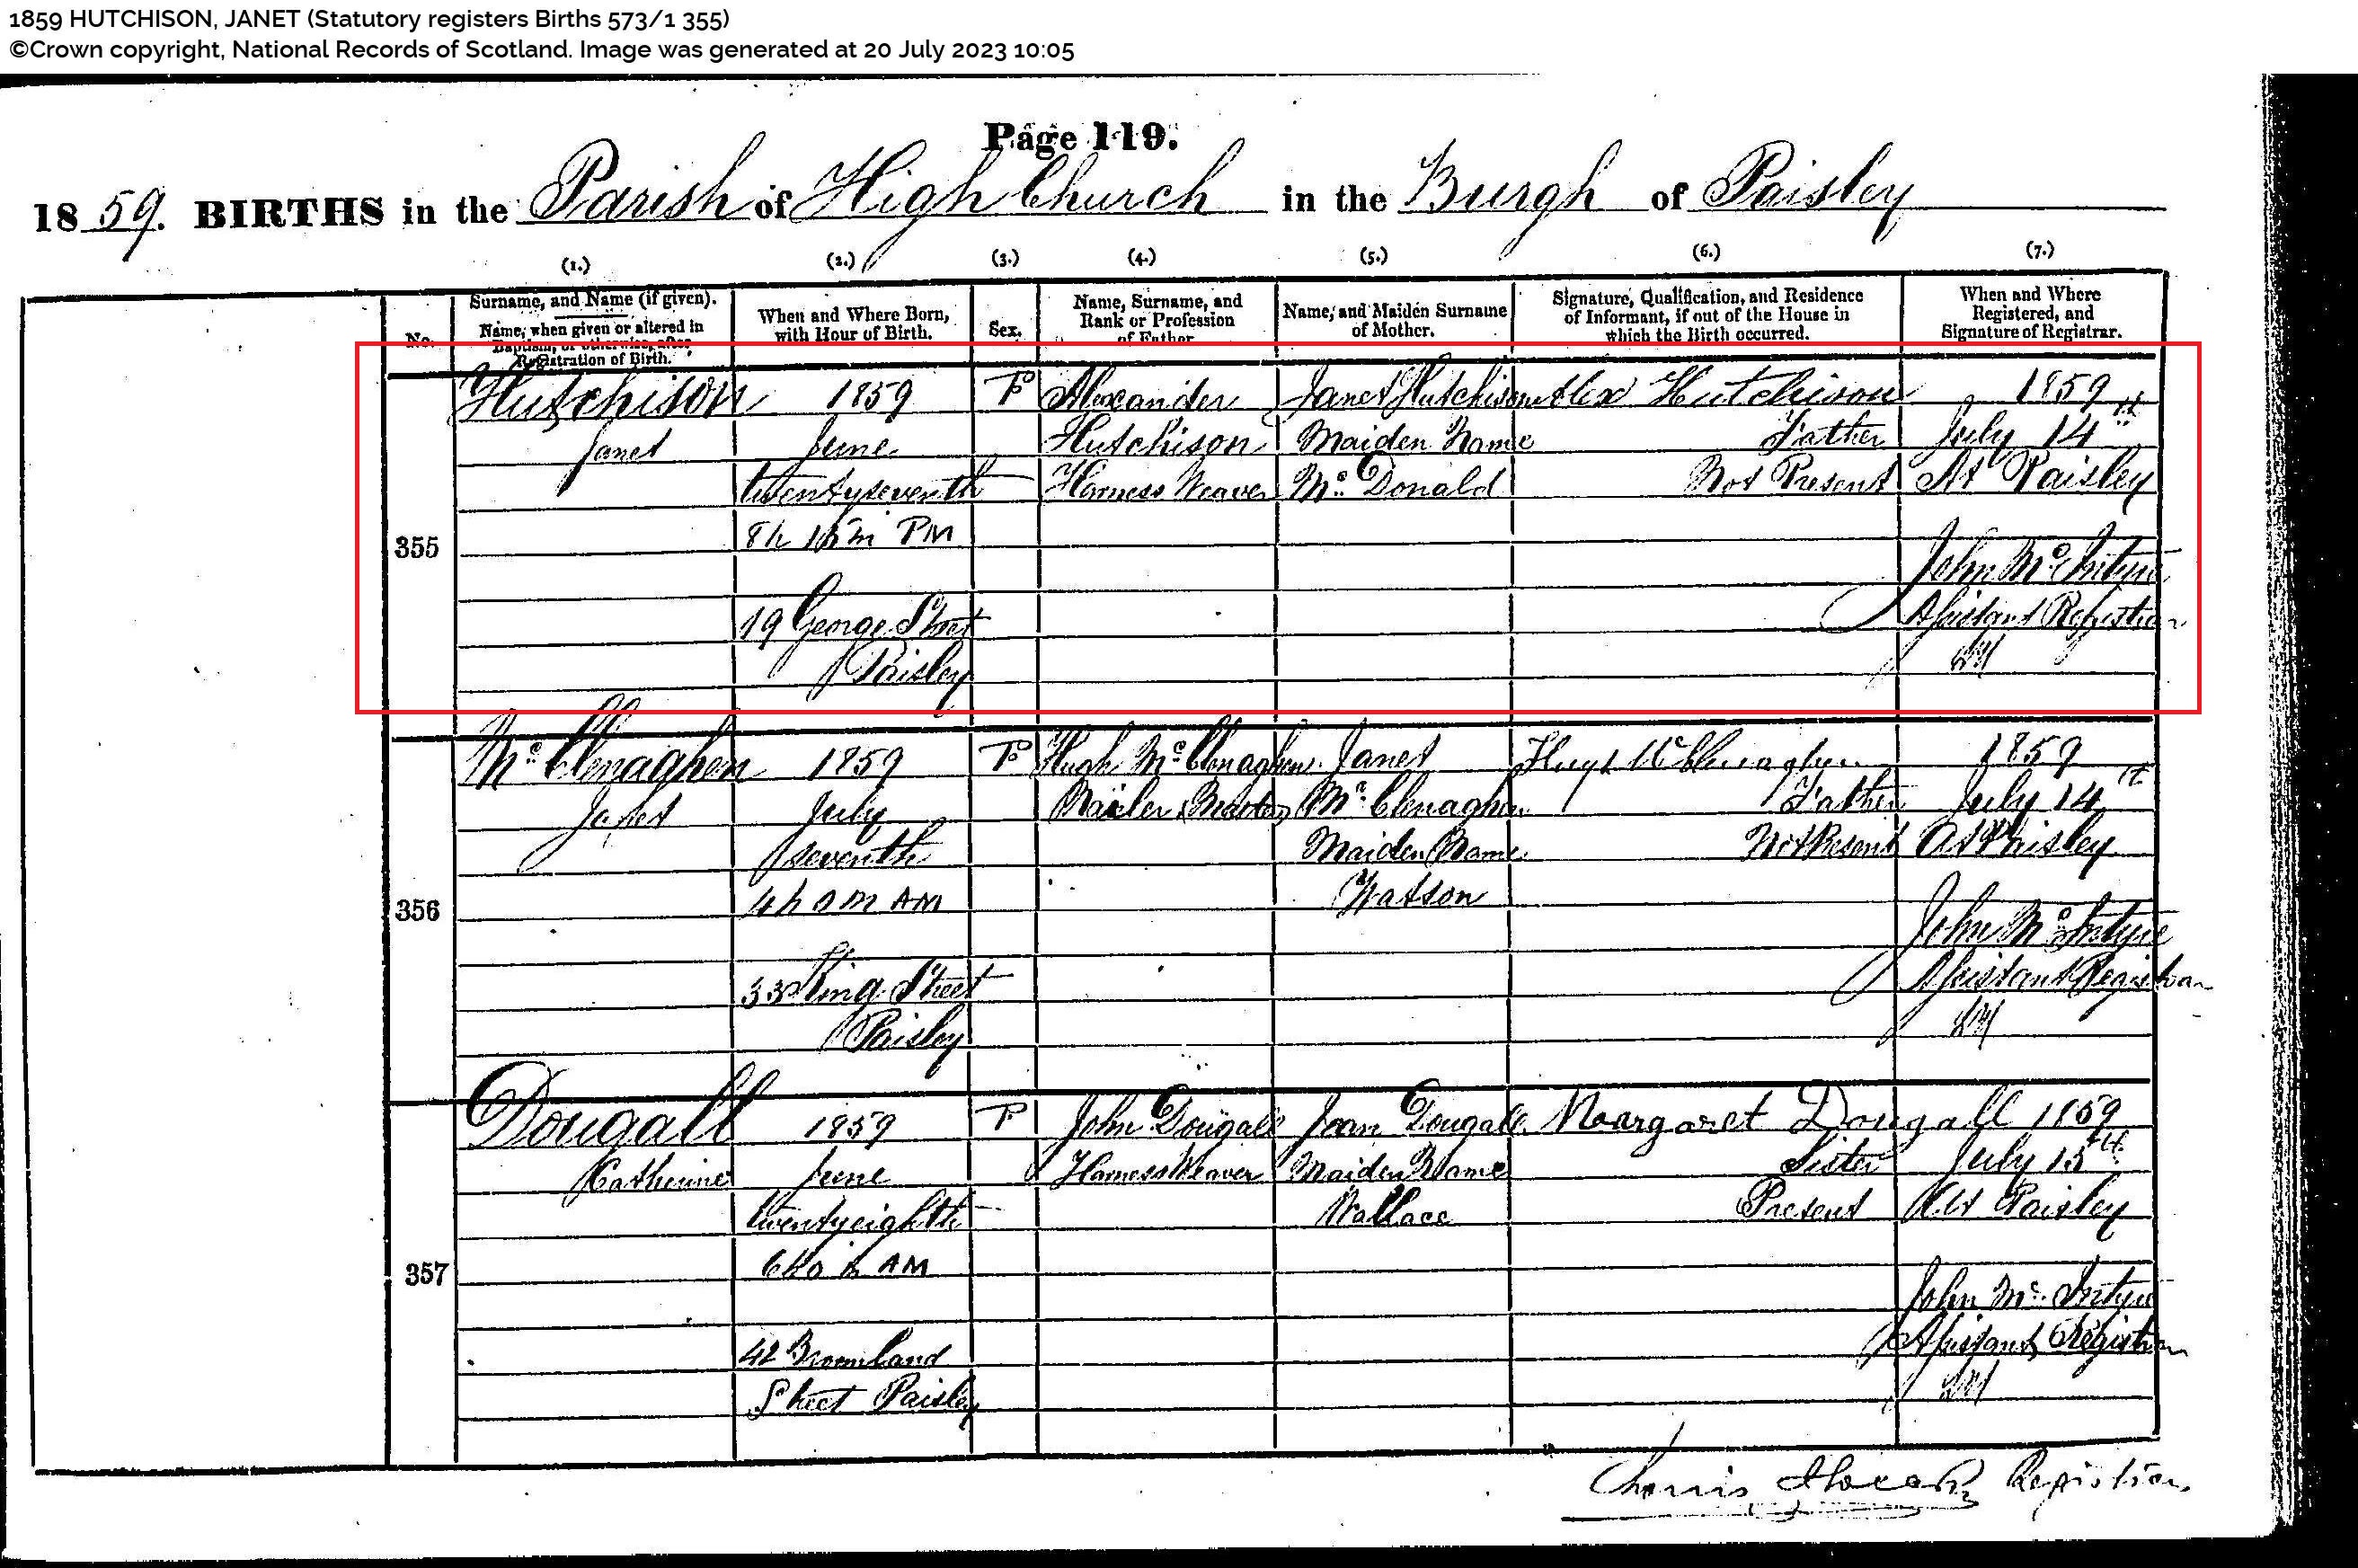 1859 HUTCHISON, JANET (Statutory registers Births 573/1 355)
©Crown copyright, National Records of Scotland. Image was generated at 20 July 2023 10:05
Page 119.
1859. BIRTHS in the Parish of High Church in the Burgh of Paisley
(1.) (2.) (3.) (4.) (5.) (6.) (7.)
No.
Surname, and Name (if given).
Name, when given or altered in
Baptism, or otherwise, after
Registration of Birth.
When and Where Born,
with Hour of Birth.
Sex.
Name, Surname, and
Rank or Profession
of Father
Name, and Maiden Surname
of Mother.
Signature, Qualification, and Residence
of Informant, if out of the House in
which the Birth occurred.
When and Where
Registered, and
Signature of Registrar.
355
Hutchison
Janet
1859
June
twentyseventh
8h 15m PM
19 George Street
Paisley
F
Alexander
Hutchison
Harness Weaver
Janet Hutchison
Maiden Name
McDonald
Alex Hutchison
Father
Not Present
1859
July 14th
At Paisley
John McIntyre
Assistant Registrar
356
McClenaghan
Janet
1859
July
seventh
4h 0m AM
33 King Street
Paisley
F
Hugh McClenaghan
Janet
McClenaghan
Maiden Name
Watson
Hugh McClenaghan
Father
Not Present
1859
July 14th
At Paisley
John McIntyre
Assistant Registrar
357
Dougall
Catherine
1859
June
twentyeighth
6h 0m AM
42 Broomland
Street Paisley
F
John Dougall
Harness Weaver
Jean Dougall
Maiden Name
Wallace
Margaret Dougall
Sister
Present
1859
July 15th
At Paisley
John McIntyre
Assistant Registrar
Registrar